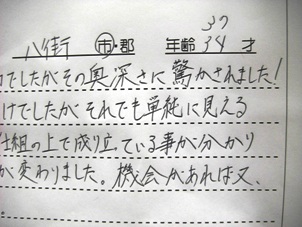 37
八街 市・郡 年齢 34 才
でしたがその奥深さに驚かされました!
けでしたがそれでも単純に見える
仕組の上で成り立っている事が分かり
が変わりました。機会があれば又、